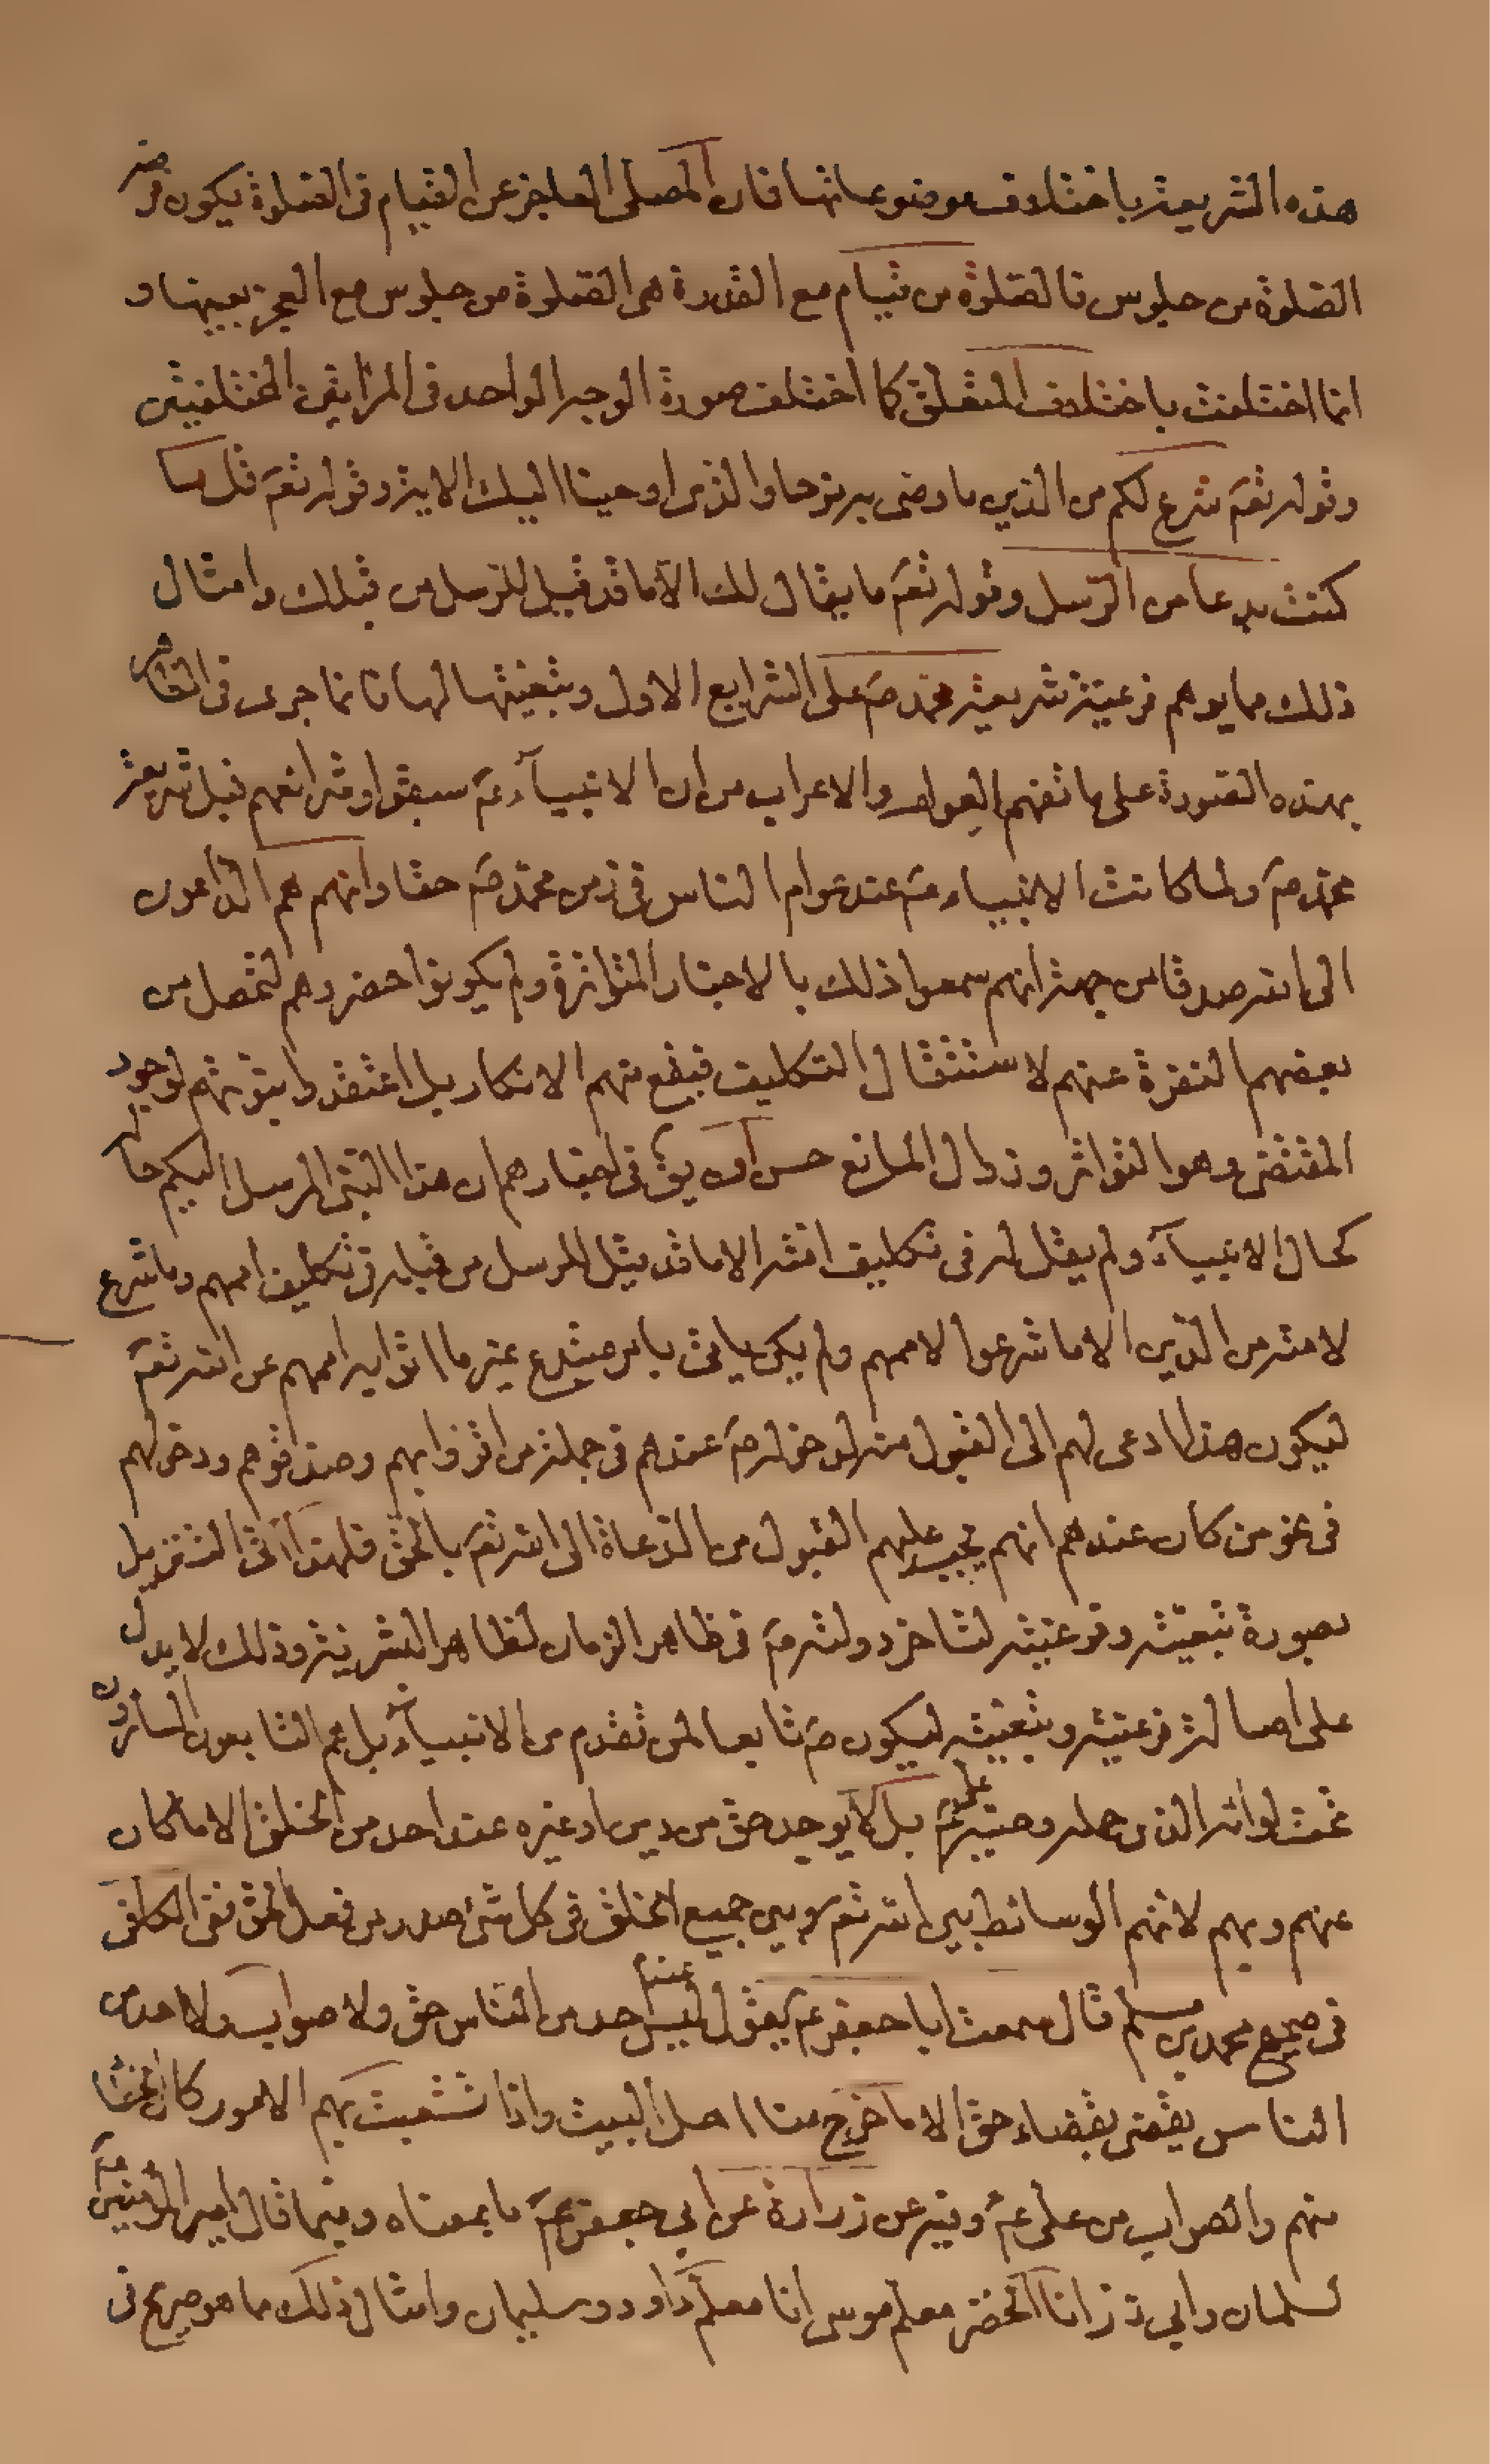 هذه الشريعة باختلاف موضوعاتها فان المصلى العاجز عن القيام فى الصلوة يكون فرضه
الصلوة من جلوس فالصلوة من قيام مع القدرة هى الصلوة من جلوس مع العجز بعينها و
انما اختلفت باختلاف المتعلق كما اختلف صورة الوجه الواحد فى المرايتين المختلفتين
وقوله تعم شرع لكم من الدين ما وصى به نوحا والذى اوحينا اليك الاية وقوله تعم قل ما
كنت بدعا من الرسل وقوله تعم ما يقال لك الا ما قد قيل للرسل من قبلك وامثال
ذلك مما يوهم فرعية شريعة محمد صم على الشرايع الاول وتبعيتها لها فانما جرى فى الظاهر
بهذه الصورة على ما تفهم العوام والاعراب من ان الانبيآء عم سبقوا وشرائعهم قبل شريعة
محمد صم ولما كانت الانبياء عم عند عوام الناس فى زمن محمد صم حقا وانهم هم الداعون
الى الله صدقا من جهة انهم سمعوا ذلك بالاخبار المتواترة ولم يكونوا حضروهم لتحصل من
بعضهم النفرة عنهم لاستثقال التكليف فيقع منهم الانكار بل اعتقدوا بنوتهم لوجود
المقتضى وهو التواتر وزوال المانع حسن ان يق فى اخبارهم ان هذا النبى المرسل اليكم حاله
كحال الانبيآء ولم يقل له فى تكليف امته الا ما قد قيل للرسل من قبله فى تكليف اممهم وما شرع
لامته من الدين الا ما شرعوا لاممهم ولم يكن ياتى بامر مبتدع غير ما اتوا به اممهم عن الله تعم
ليكون هذا ادعى لهم الى القبول منه لدخوله صم عندهم فى جملة من اقروا بهم وصدقوهم ودخولهم
فى نحو من كان عندهم انهم يجب عليهم القبول من الدعاة الى الله تعم بالحق فلهذا اتى التنزيل
بصورة تبعيته وفرعيته لتاخر دولته صم فى ظاهر الزمان لظاهر البشرية وذلك لا يدل
على اصالة فرعيته وتبعيته ليكون صم تابعا لمن تقدم من الانبيآء بل هم التابعون السائرون
تحت لوائه الذى حمله وصيه على عم بل لا يوجد حق من دين او غيره عند احد من الخلق الا ما كان
عنهم وبهم لانهم الوسائط بين الله تعم وبين جميع الخلق فى كل شئ صدر من فعل الحق ففى الكافى
فى صحيح محمد بن مسلم قال سمعت ابا جعفر عم يقول ليس عند احد من الناس حق ولا صواب ولا احد من
الناس يقضى بقضاء حق الا ما خرج منا اهل البيت واذا تشعبت بهم الامور كان الخطا
منهم والصواب من على عم وفيه عن زرارة عن ابي جعفر عم ما بمعناه وفيما قال امير المؤمنين عم
لسلمان وابي ذر انا الخضر معلم موسى انا معلم داود وسليمان وامثال ذلك مما هو صريح فى